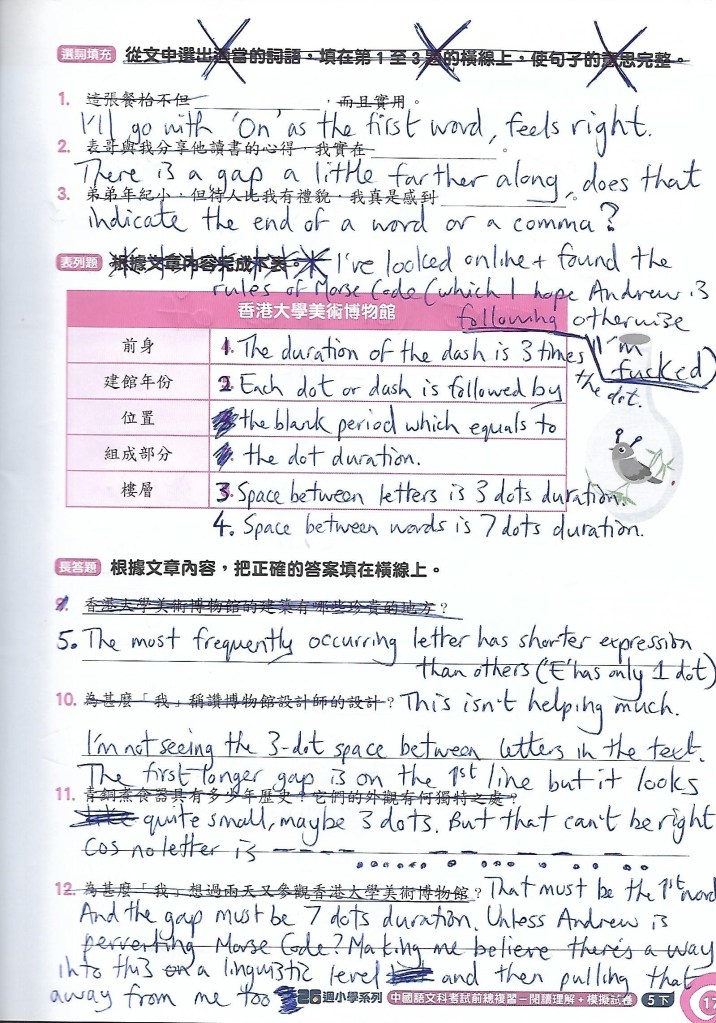 選詞填充 從文中選出適當的詞語，填在第1至3題的橫線上，使句子的意思完整。
1. 這張餐枱不但＿＿＿＿＿＿，而且實用。
I'll go with 'On' as the first word, feels right.
2. 表哥與我分享他讀書的心得，我實在＿＿＿＿＿＿。
There is a gap a little farther along, does that
3. 弟弟年紀小，但待人比我有禮貌，我真是感到＿＿＿＿＿＿。
indicate the end of a word or a comma?
表列題 根據文章內容完成下表。
I've looked online + found the
rules of Morse Code (which I hope Andrew is
following otherwise
I'm
fucked)
香港大學美術博物館
前身 1. The duration of the dash is 3 times
the dot.
建館年份 2. Each dot or dash is followed by
位置 the blank period which equals to
組成部分 the dot duration.
樓層 3. Space between letters is 3 dots duration.
4. Space between words is 7 dots duration.
長答題 根據文章內容，把正確的答案填在橫線上。
9. 香港大學美術博物館的建築有哪些珍貴的地方？
5. The most frequently occurring letter has shorter expression
than others ('E' has only 1 dot)
10. 為甚麼「我」稱讚博物館設計師的設計？ This isn't helping much.
I'm not seeing the 3-dot space between letters in the text.
The first longer gap is on the 1st line but it looks
11. 青銅煮食器具有多少年歷史？它們的外觀有何獨特之處？
quite small, maybe 3 dots. But that can't be right
cos no letter is
12. 為甚麼「我」想過兩天又參觀香港大學美術博物館？ That must be the 1st word
And the gap must be 7 dots duration. Unless Andrew is
perverting Morse Code? Making me believe there's a way
into this on a linguistic level and then pulling that
away from me too
26週小學系列 中國語文科考試前總複習－閱讀理解＋模擬試卷 5下 17